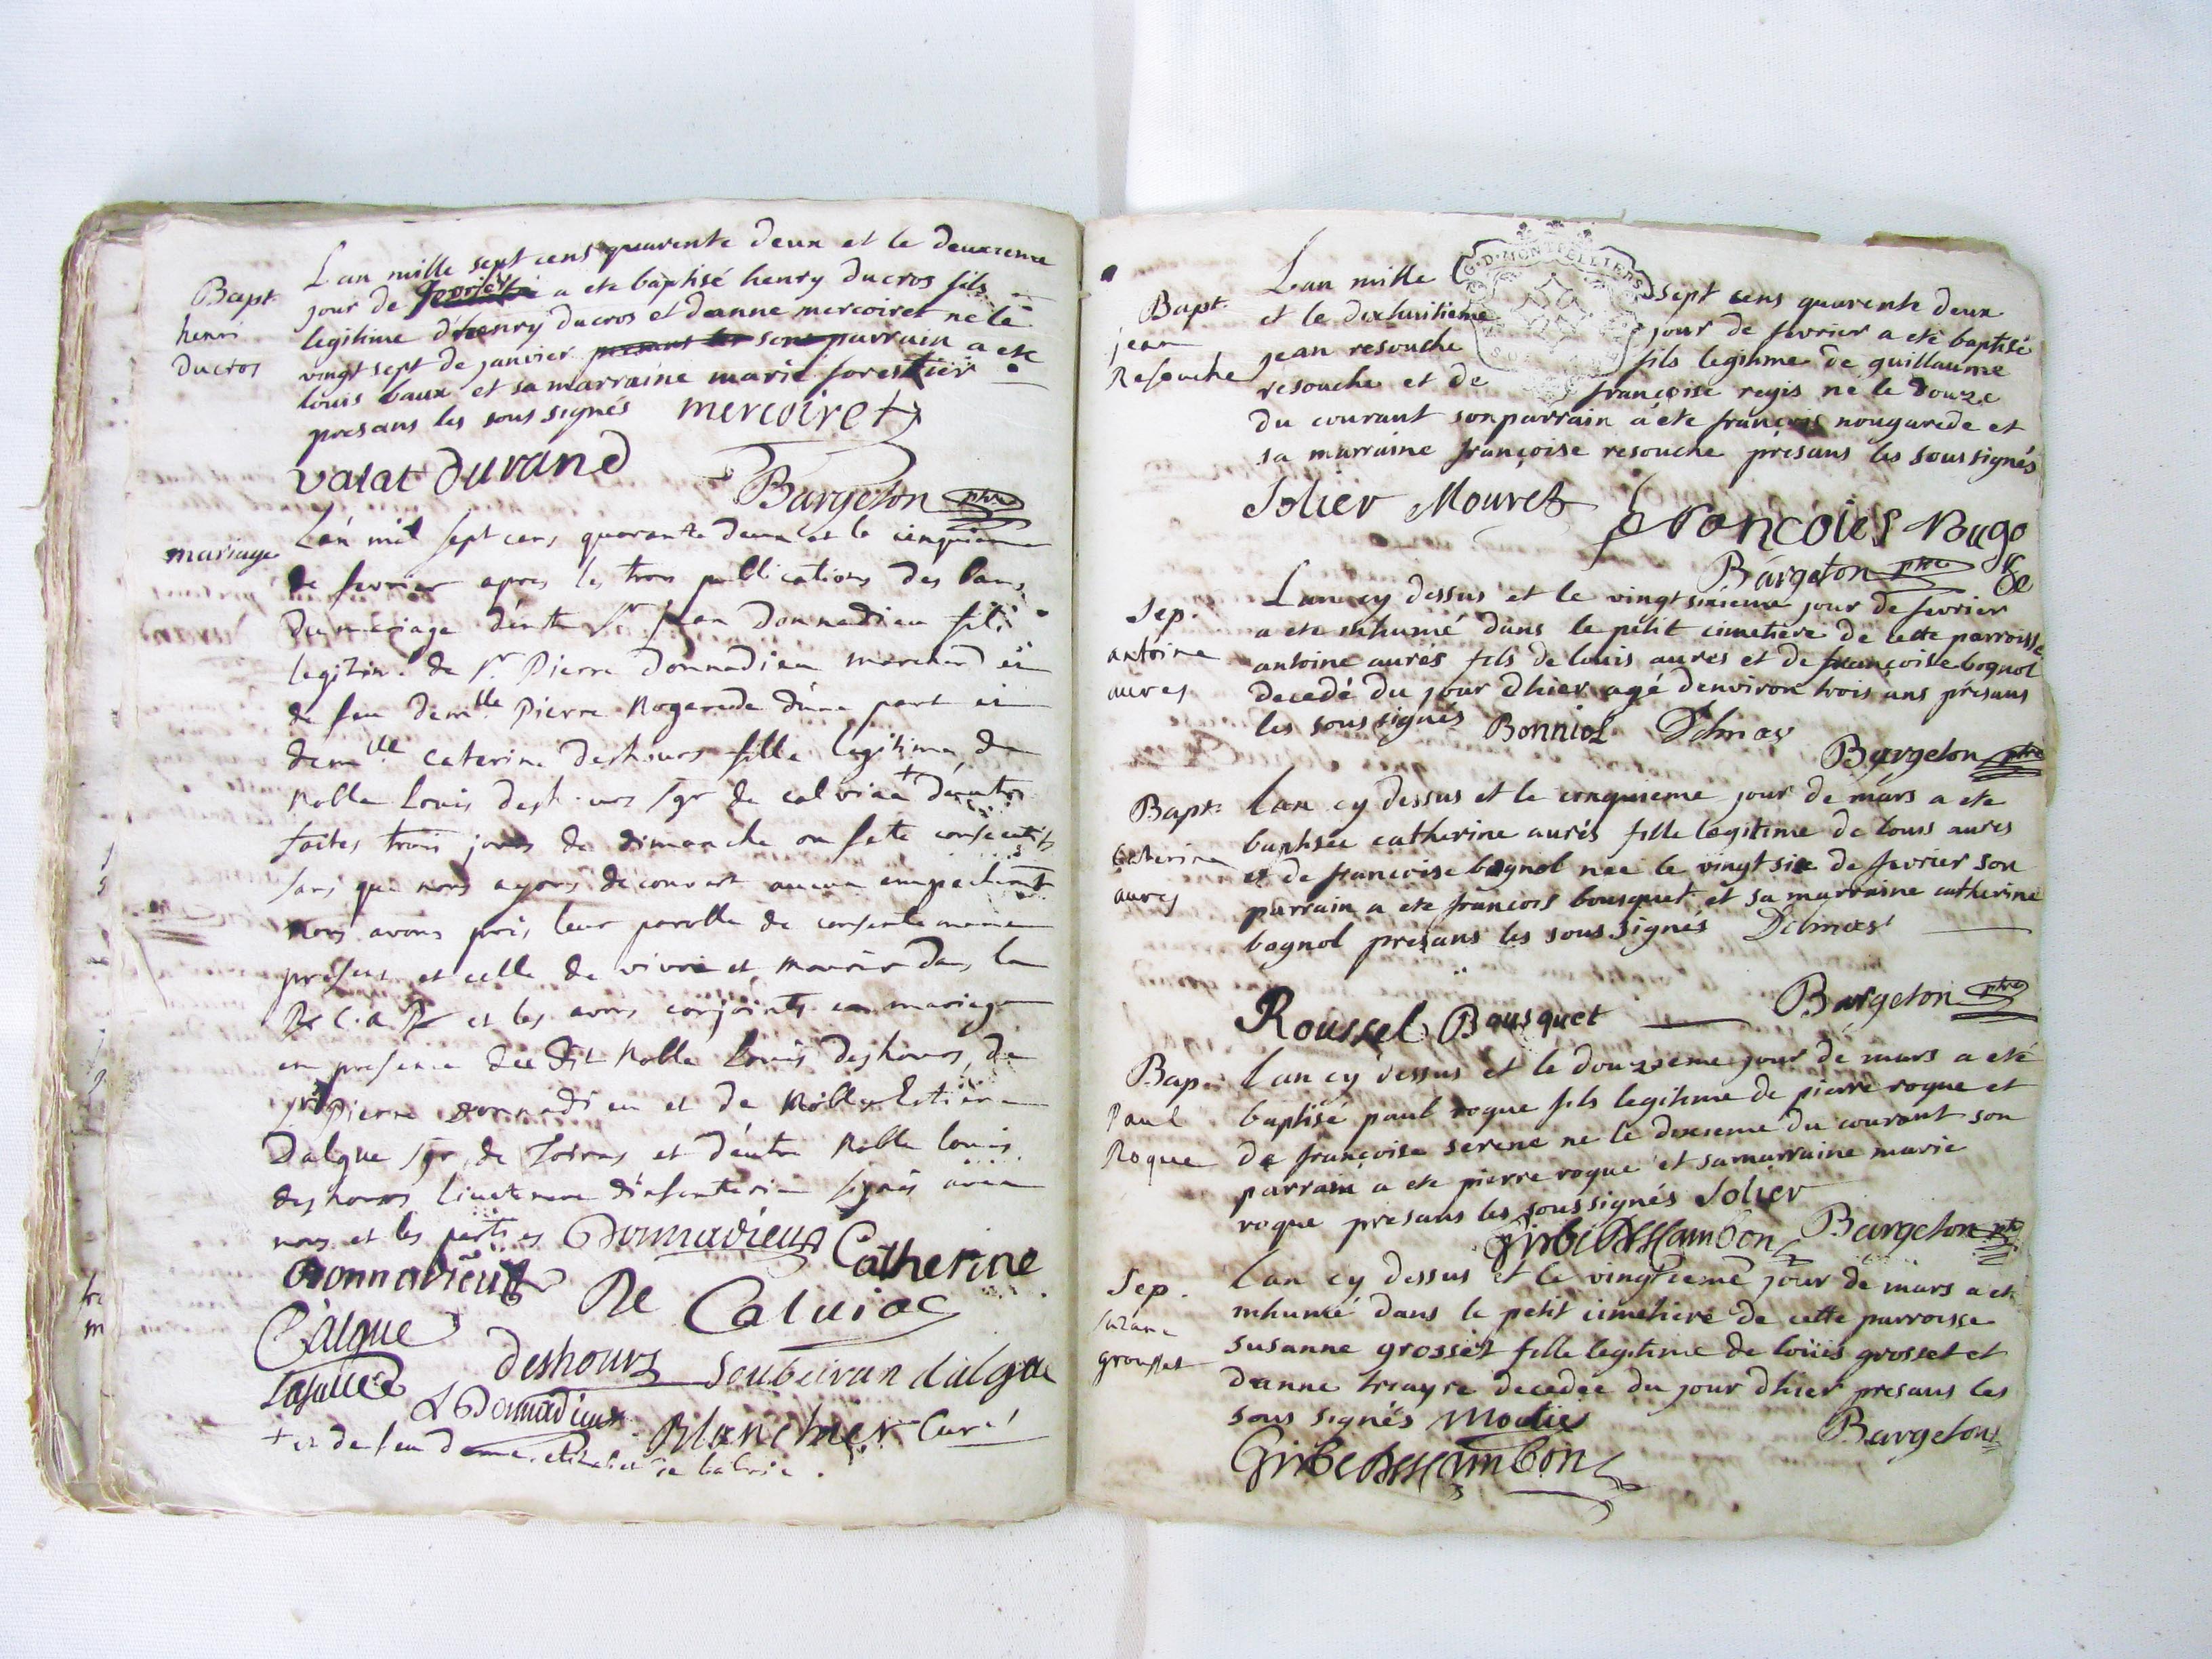 Bapt.
henri
Ducros
L'an mille sept cens quarente deux et le deuxieme
jour de fevrier a ete baptisé henry ducros fils
legitime d'henry ducros et d'anne mercoiret né le
vingt sept de janvier son parrain a ete
louis baux et sa marraine marie forestier
presans les sous signés mercoiret
valat Durand
Bargeton ptre
mariage
L'an mil sept cens quarante deux et le cinquieme
de fevrier apres les trois publications des bans
du mariage d'entre Sr Jean Donnadieu fils
legitime de Sr Pierre Donnadieu marchand et
de feu demlle Pierre Nogarede d'une part et
demlle Caterine Deshours fille legitime de
Noble Louis Deshours Sgr de Calviac + d'autre
faites trois jours de dimanche ou fete consecutifs
sans que nous ayons decouvert aucun empechement
nous avons pris leur parolle de consentement
presens et celle de vivre et mourir dans la
R. C. A. R. et les avons conjoints en mariage
en presence du dit Noble Louis Deshours, de
Sr Pierre Donnadieu et de Noble Estiene
Dalgue Sgr de et d'autre Noble Louis
Deshours lieutenant d'infanterie signés avec
nous et les parties Donnadieu Catherine
Donnadieu De Calviac
Dalgue
deshours Soubeiran dalgue
Lasalle Donnadieu Blanchier Curé
+ et de feu dame
Bapt.
jean
Resouche
L'an mille sept cens quarente deux
et le dixhuitieme jour de fevrier a eté baptisé
jean resouche fils legitime de guillaume
resouche et de françoise regis né le douze
du courant son parrain a éte françois nougarede et
sa marraine françoise resouche presans les sous signés
Solier Mouret francoies Nouga
rede
Bargeton ptre
Sep.
antoine
aures
L'an cy dessus et le vingt sixieme jour de fevrier
a ete inhumé dans le petit cimetiere de cette parroisse
antoine aurés fils de louis aures et de françoise bagnol
decedé du jour d'hier agé d'environ trois ans présans
les sous signés Bonniol Delmas
Bargeton ptre
Bapt.
Caterine
aures
L'an cy dessus et le cinquieme jour de mars a ete
baptisée catherine aurés fille legitime de louis aures
et de francoise bagnol née le vingt six de fevrier son
parrain a ete françois bousquet et sa marraine catherine
bagnol presans les sous signés Delmas
Roussel Bousquet Bargeton ptre
Bap.
Paul
Roque
L'an cy dessus et le douzieme jour de mars a eté
baptisé paul roque fils legitime de pierre roque et
de françoise serene né le dixieme du courant son
parrain a ete pierre roque et sa marraine marie
roque presans les sous signés Solier
Bargeton ptre
Sep.
suzane
grousset
L'an cy dessus et le vingtieme jour de mars a ete
inhumé dans le petit cimetiere de cette parroisse
susanne grosset fille legitime de loüis grosset et
d'anne decedée du jour d'hier presans les
sous signés
Bargeton